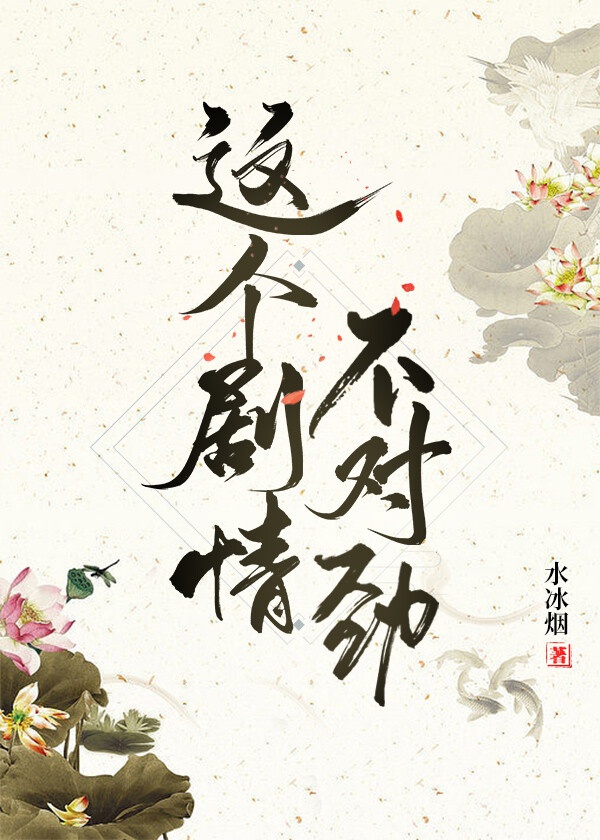 这个剧情
不对劲
水冰烟
著